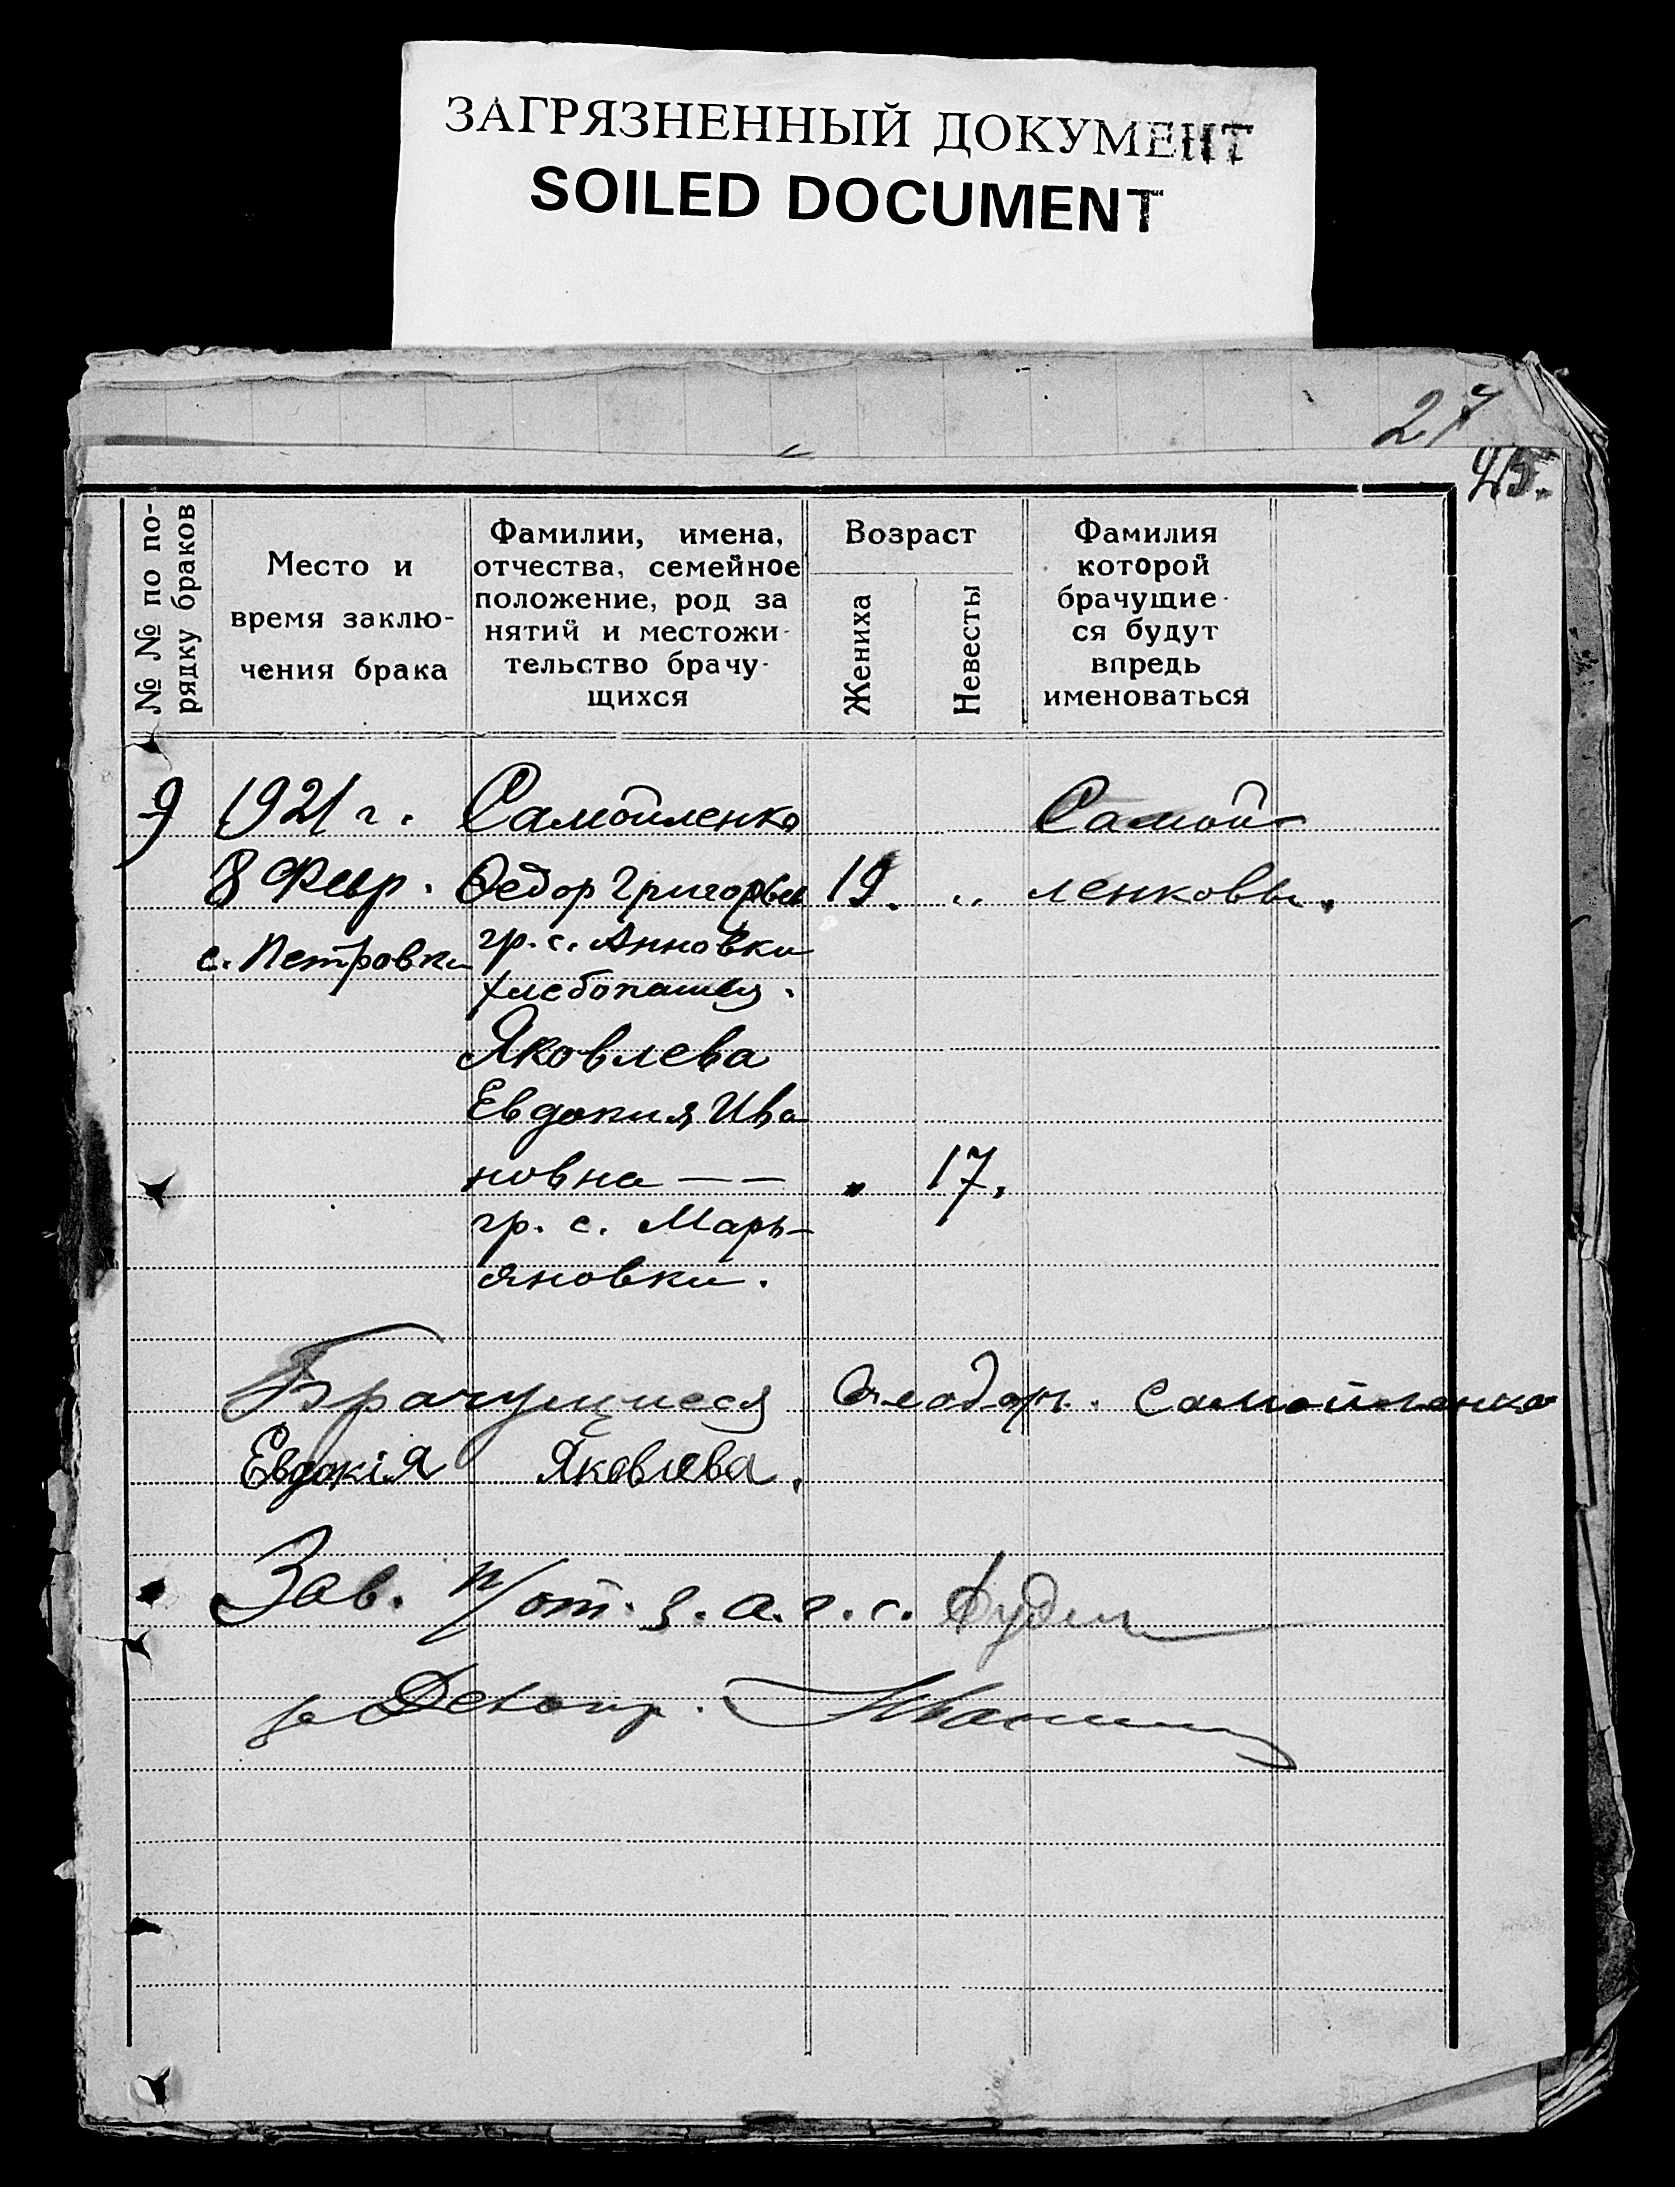 ЗАГРЯЗНЕННЫЙ ДОКУМЕНТ
SOILED DOCUMENT
27
45.
№ № по по-
рядку браков
Место и
время заклю-
чения брака
Фамилии, имена,
отчества, семейное
положение, род за
нятий и местожи-
тельство брачу-
щихся
Возраст
Жениха
Невесты
Фамилия
которой
брачущие-
ся будут
впредь
именоваться
9 1921 г. Самойленко Самой-
8 Февр. Федор Григорьев 19. „ ленковы.
с. Петровки гр. с. Анновки
хлебопашец.
Яковлева
Евдокия Ива
новна — — „ 17.
гр. с. Марь-
яновки.
Брачущиеся Феодоръ. Самойленко
Евдокія Яковлева.
Зав. п/от. з. а. г. с.
за Делопр.